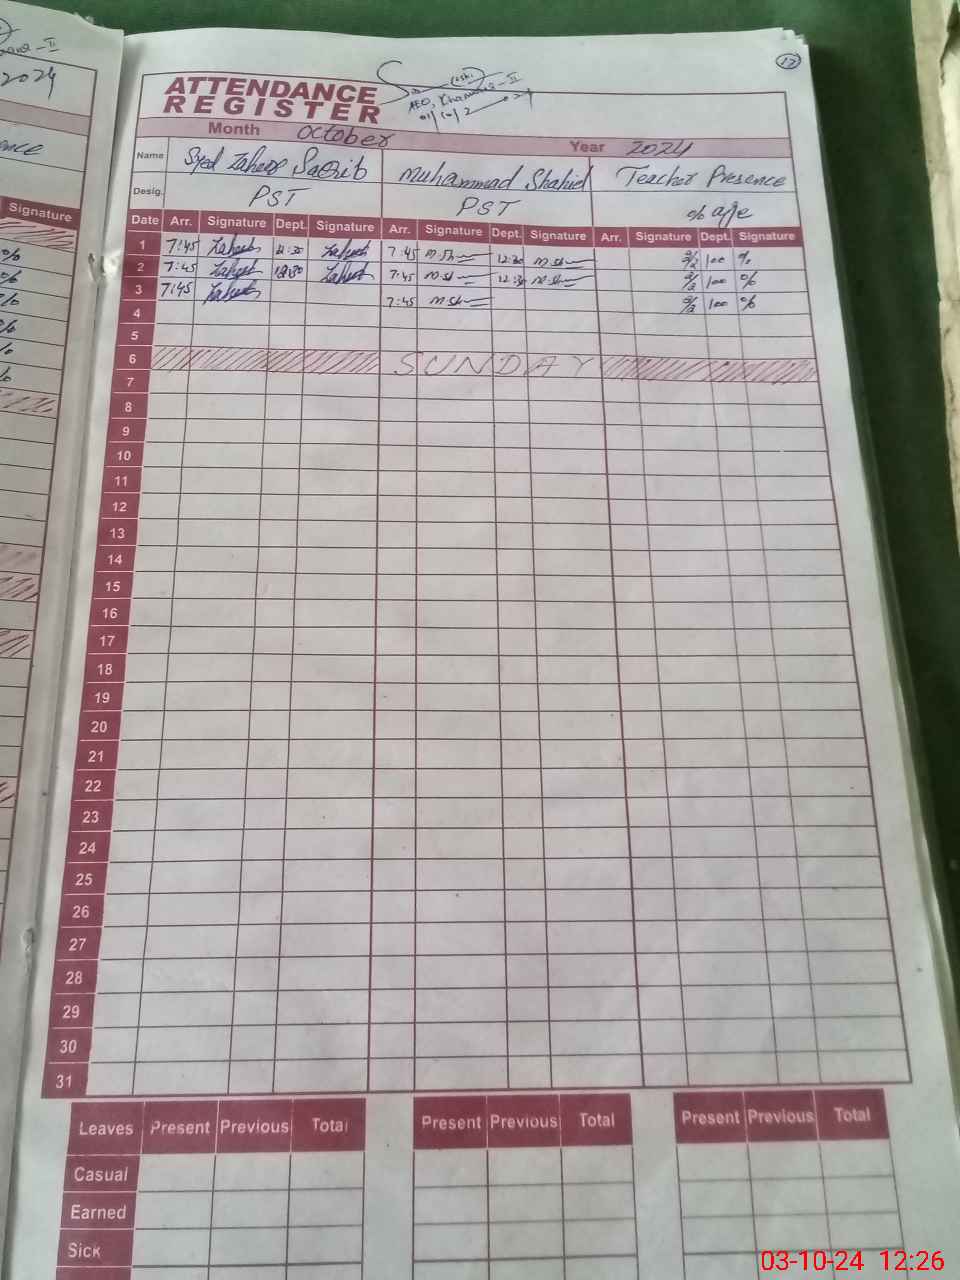 17
ATTENDANCE
REGISTER
AEO, Khanewal-II
01/10/2024
Month October Year 2024
Name Syed Zaheer Saqib Muhammad Shahid Teacher Presence
Desig. PST PST %age
Date Arr. Signature Dept. Signature Arr. Signature Dept. Signature Arr. Signature Dept. Signature
1 7:45 Zaheer 12:30 Zaheer 7:45 M.Sh 12:30 M.Sh 2/2 100 %
2 7:45 Zaheer 12:30 Zaheer 7:45 M.Sh 12:30 M.Sh 2/2 100 %
3 7:45 Zaheer 7:45 M.Sh 2/2 100 %
4
5
6 SUNDAY
7
8
9
10
11
12
13
14
15
16
17
18
19
20
21
22
23
24
25
26
27
28
29
30
31
Leaves Present Previous Total Present Previous Total Present Previous Total
Casual
Earned
Sick
2024
Signature
03-10-24 12:26